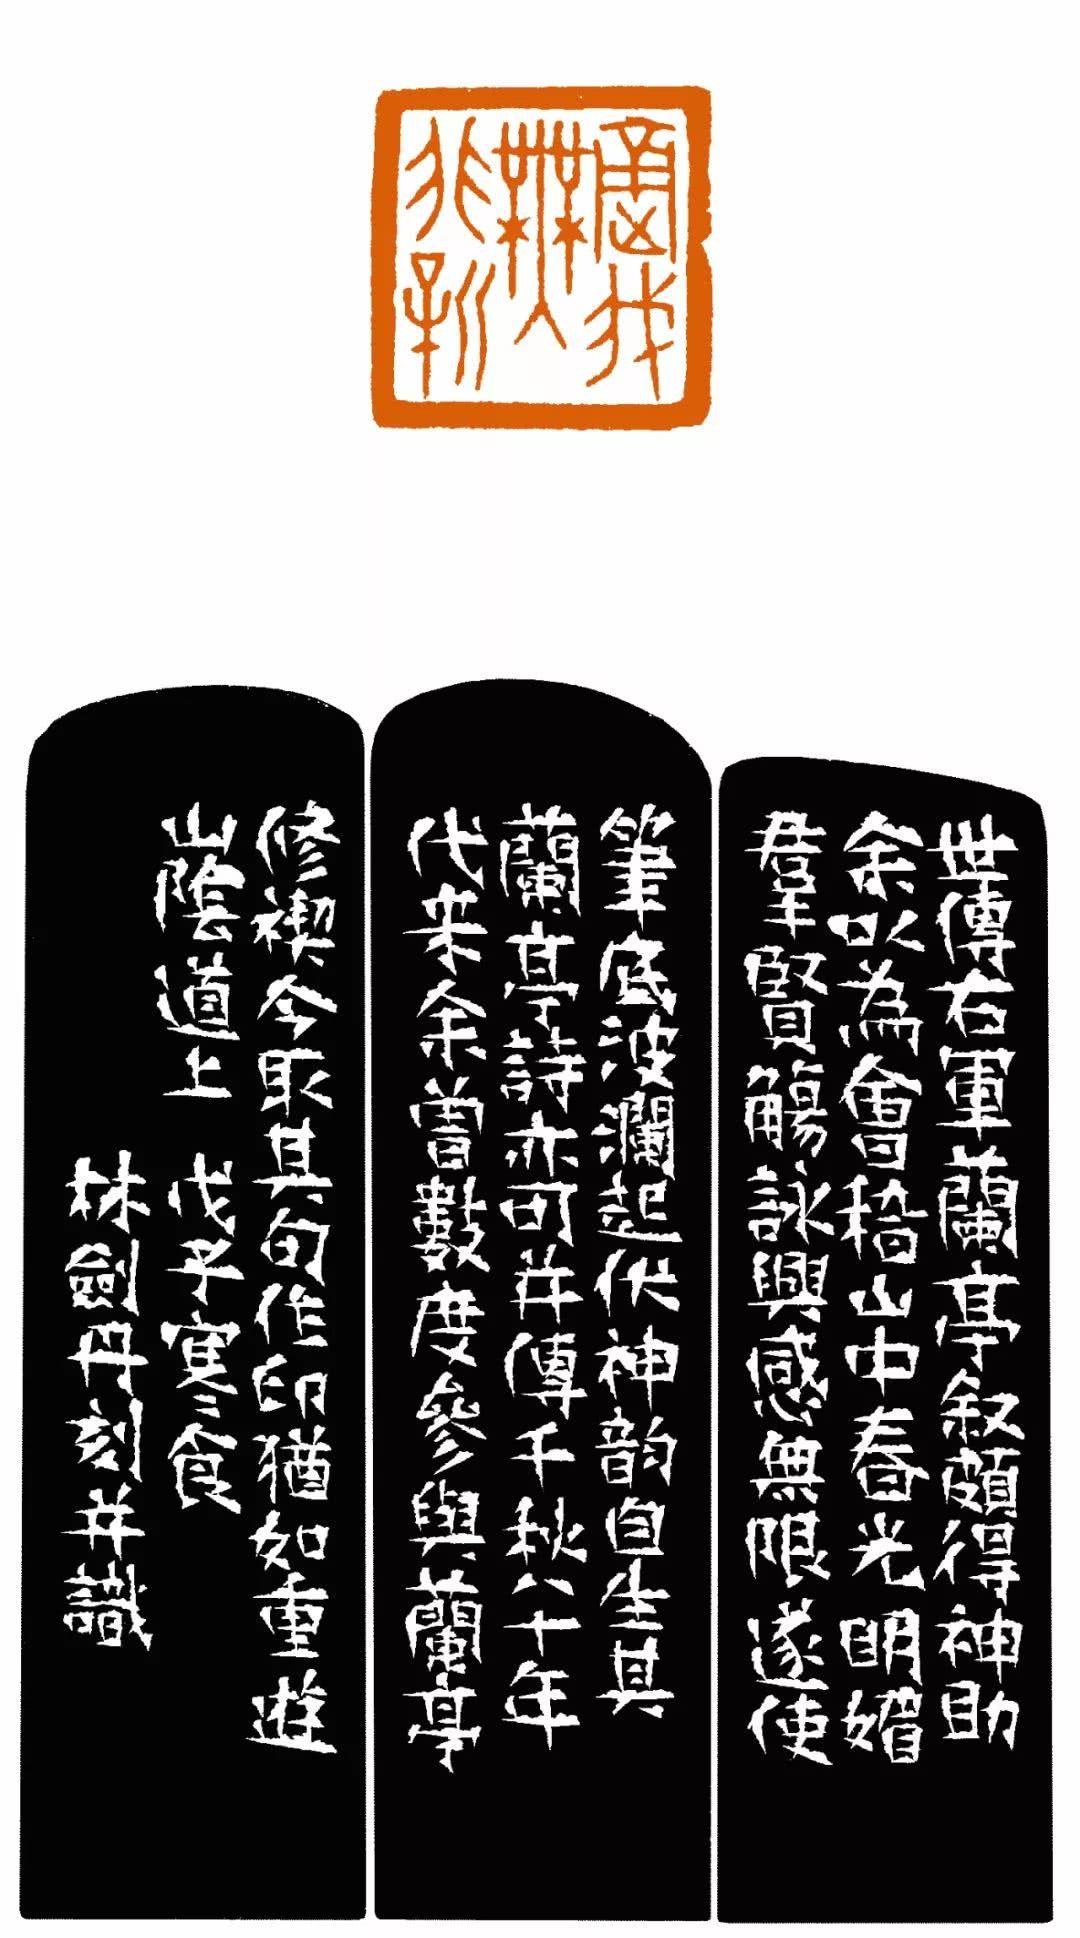 適我
無
非新
世傳右軍蘭亭叙頗得神助
余以為會稽山中春光明媚
羣賢觴詠興感無限遂使
筆底波瀾起伏神韵自生其
蘭亭詩亦可并傳千秋八十年
代来余嘗數度參與蘭亭
修禊今取其句作印猶如重遊
山陰道上 戊子寒食
林劍丹刻并識